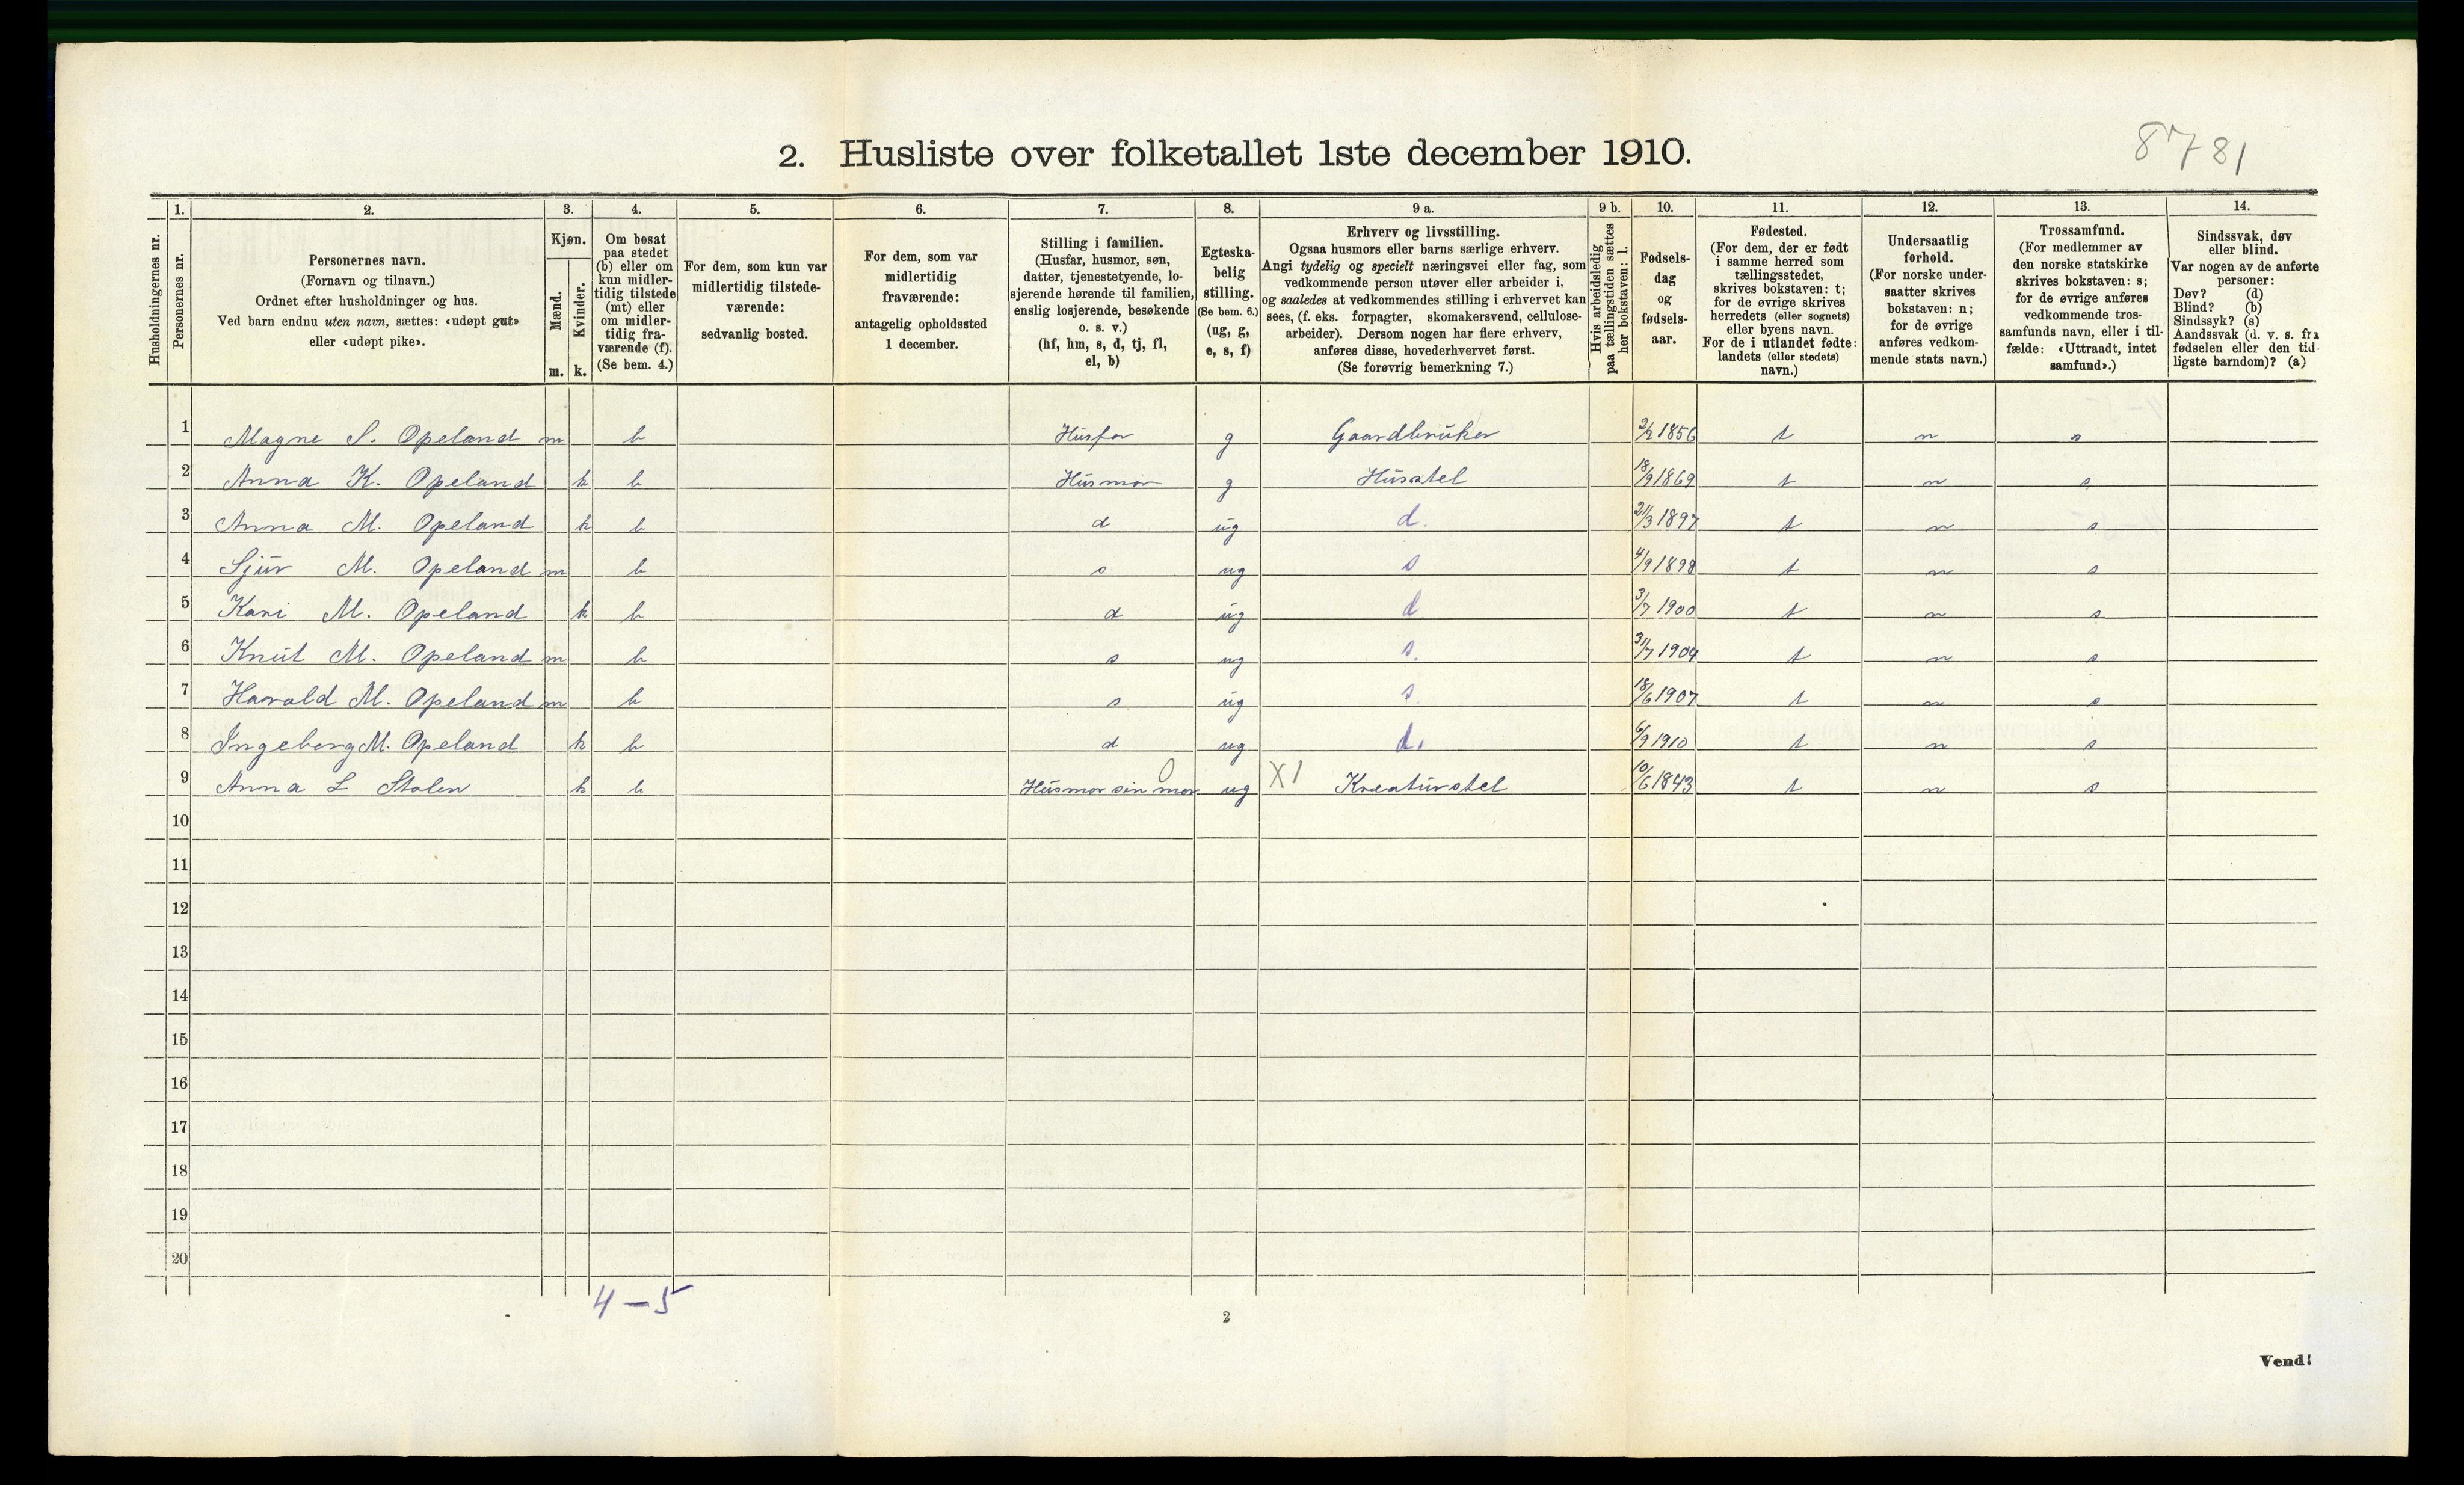 2. Husliste over folketallet 1ste december 1910.
8781
Husholdningernes nr.
1.
Personernes nr.
2.
Personernes navn.
(Fornavn og tilnavn.)
Ordnet efter husholdninger og hus.
Ved barn endnu uten navn, sættes: «udøpt gut»
eller «udøpt pike».
3.
Kjøn.
Mænd.
Kvinder.
m. k.
4.
Om bosat
paa stedet
(b) eller om
kun midler-
tidig tilstede
(mt) eller
om midler-
tidig fra-
værende (f).
(Se bem. 4.)
5.
For dem, som kun var
midlertidig tilstede-
værende:
sedvanlig bosted.
6.
For dem, som var
midlertidig
fraværende:
antagelig opholdssted
1 december.
7.
Stilling i familien.
(Husfar, husmor, søn,
datter, tjenestetyende, lo-
sjerende hørende til familien,
enslig losjerende, besøkende
o. s. v.)
(hf, hm, s, d, tj, fl,
el, b)
8.
Egteska-
belig
stilling.
(Se bem. 6.)
(ug, g,
e, s, f)
9 a.
Erhverv og livsstilling.
Ogsaa husmors eller barns særlige erhverv.
Angi tydelig og specielt næringsvei eller fag, som
vedkommende person utøver eller arbeider i,
og saaledes at vedkommendes stilling i erhvervet kan
sees, (f. eks. forpagter, skomakersvend, cellulose-
arbeider). Dersom nogen har flere erhverv,
anføres disse, hovederhvervet først.
(Se forøvrig bemerkning 7.)
9 b.
Hvis arbeidsledig
paa tællingstiden sættes
her bokstaven: l.
10.
Fødsels-
dag
og
fødsels-
aar.
11.
Fødested.
(For dem, der er født
i samme herred som
tællingsstedet,
skrives bokstaven: t;
for de øvrige skrives
herredets (eller sognets)
eller byens navn.
For de i utlandet fødte:
landets (eller stedets)
navn.)
12.
Undersaatlig
forhold.
(For norske under-
saatter skrives
bokstaven: n;
for de øvrige
anføres vedkom-
mende stats navn.)
13.
Trossamfund.
(For medlemmer av
den norske statskirke
skrives bokstaven: s;
for de øvrige anføres
vedkommende tros-
samfunds navn, eller i til-
fælde: «Uttraadt, intet
samfund».)
14.
Sindssvak, døv
eller blind.
Var nogen av de anførte
personer:
Døv? (d)
Blind? (b)
Sindssyk? (s)
Aandssvak (d. v. s. fra
fødselen eller den tid-
ligste barndom)? (a)
1 Magne S. Opeland m b Husfar g Gaardbruker 2/2 1856 t n s
2 Anna K. Opeland k b Husmor g Husstel 18/9 1869 t n s
3 Anna M. Opeland k b d ug d. 21/3 1897 t n s
4 Sjur M. Opeland m b s ug s 4/9 1898 t n s
5 Kari M. Opeland k b d ug d 3/7 1900 t n s
6 Knut M. Opeland m b s ug s. 31/7 1904 t n s
7 Harald M. Opeland m b s ug s. 18/6 1907 t n s
8 Ingeborg M. Opeland k b d ug d. 6/9 1910 t n s
9 Anna L Stolen k b Husmor sin mor 0 ug X1 Kreaturstel 10/6 1843 t n s
10
11
12
13
14
15
16
17
18
19
20
4-5
2
Vend!